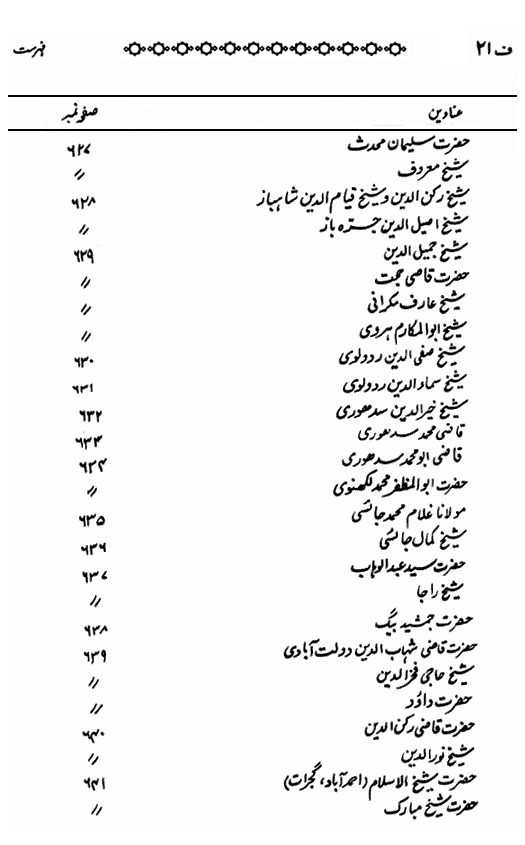 ف ۲۱ فہرست
عناوین صفحہ نمبر
حضرت سلیمان محدث ۶۲۷
شیخ معروف 〃
شیخ رکن الدین و شیخ قیام الدین شاہباز ۶۲۸
شیخ اصیل الدین جرّہ باز 〃
شیخ جمیل الدین ۶۲۹
حضرت قاضی حجت 〃
شیخ عارف مکرانی 〃
شیخ ابوالمکارم ہروی 〃
شیخ صفی الدین ردولوی ۶۳۰
شیخ سماء الدین ردولوی ۶۳۱
شیخ خیرالدین سدھوری ۶۳۲
قاضی محمد سدھوری ۶۳۳
قاضی ابو محمد سدھوری ۶۳۴
حضرت ابوالمظفر محمد لکھنوی 〃
مولانا غلام محمد جائسی ۶۳۵
شیخ کمال جائسی ۶۳۶
حضرت سید عبدالوہاب ۶۳۷
شیخ راجا 〃
حضرت جمشید بیگ ۶۳۸
حضرت قاضی شہاب الدین دولت آبادی ۶۳۹
شیخ حاجی فخرالدین 〃
حضرت داؤد 〃
حضرت قاضی رکن الدین ۶۴۰
شیخ نورالدین 〃
حضرت شیخ الاسلام (احمدآباد، گجرات) ۶۴۱
حضرت شیخ مبارک 〃